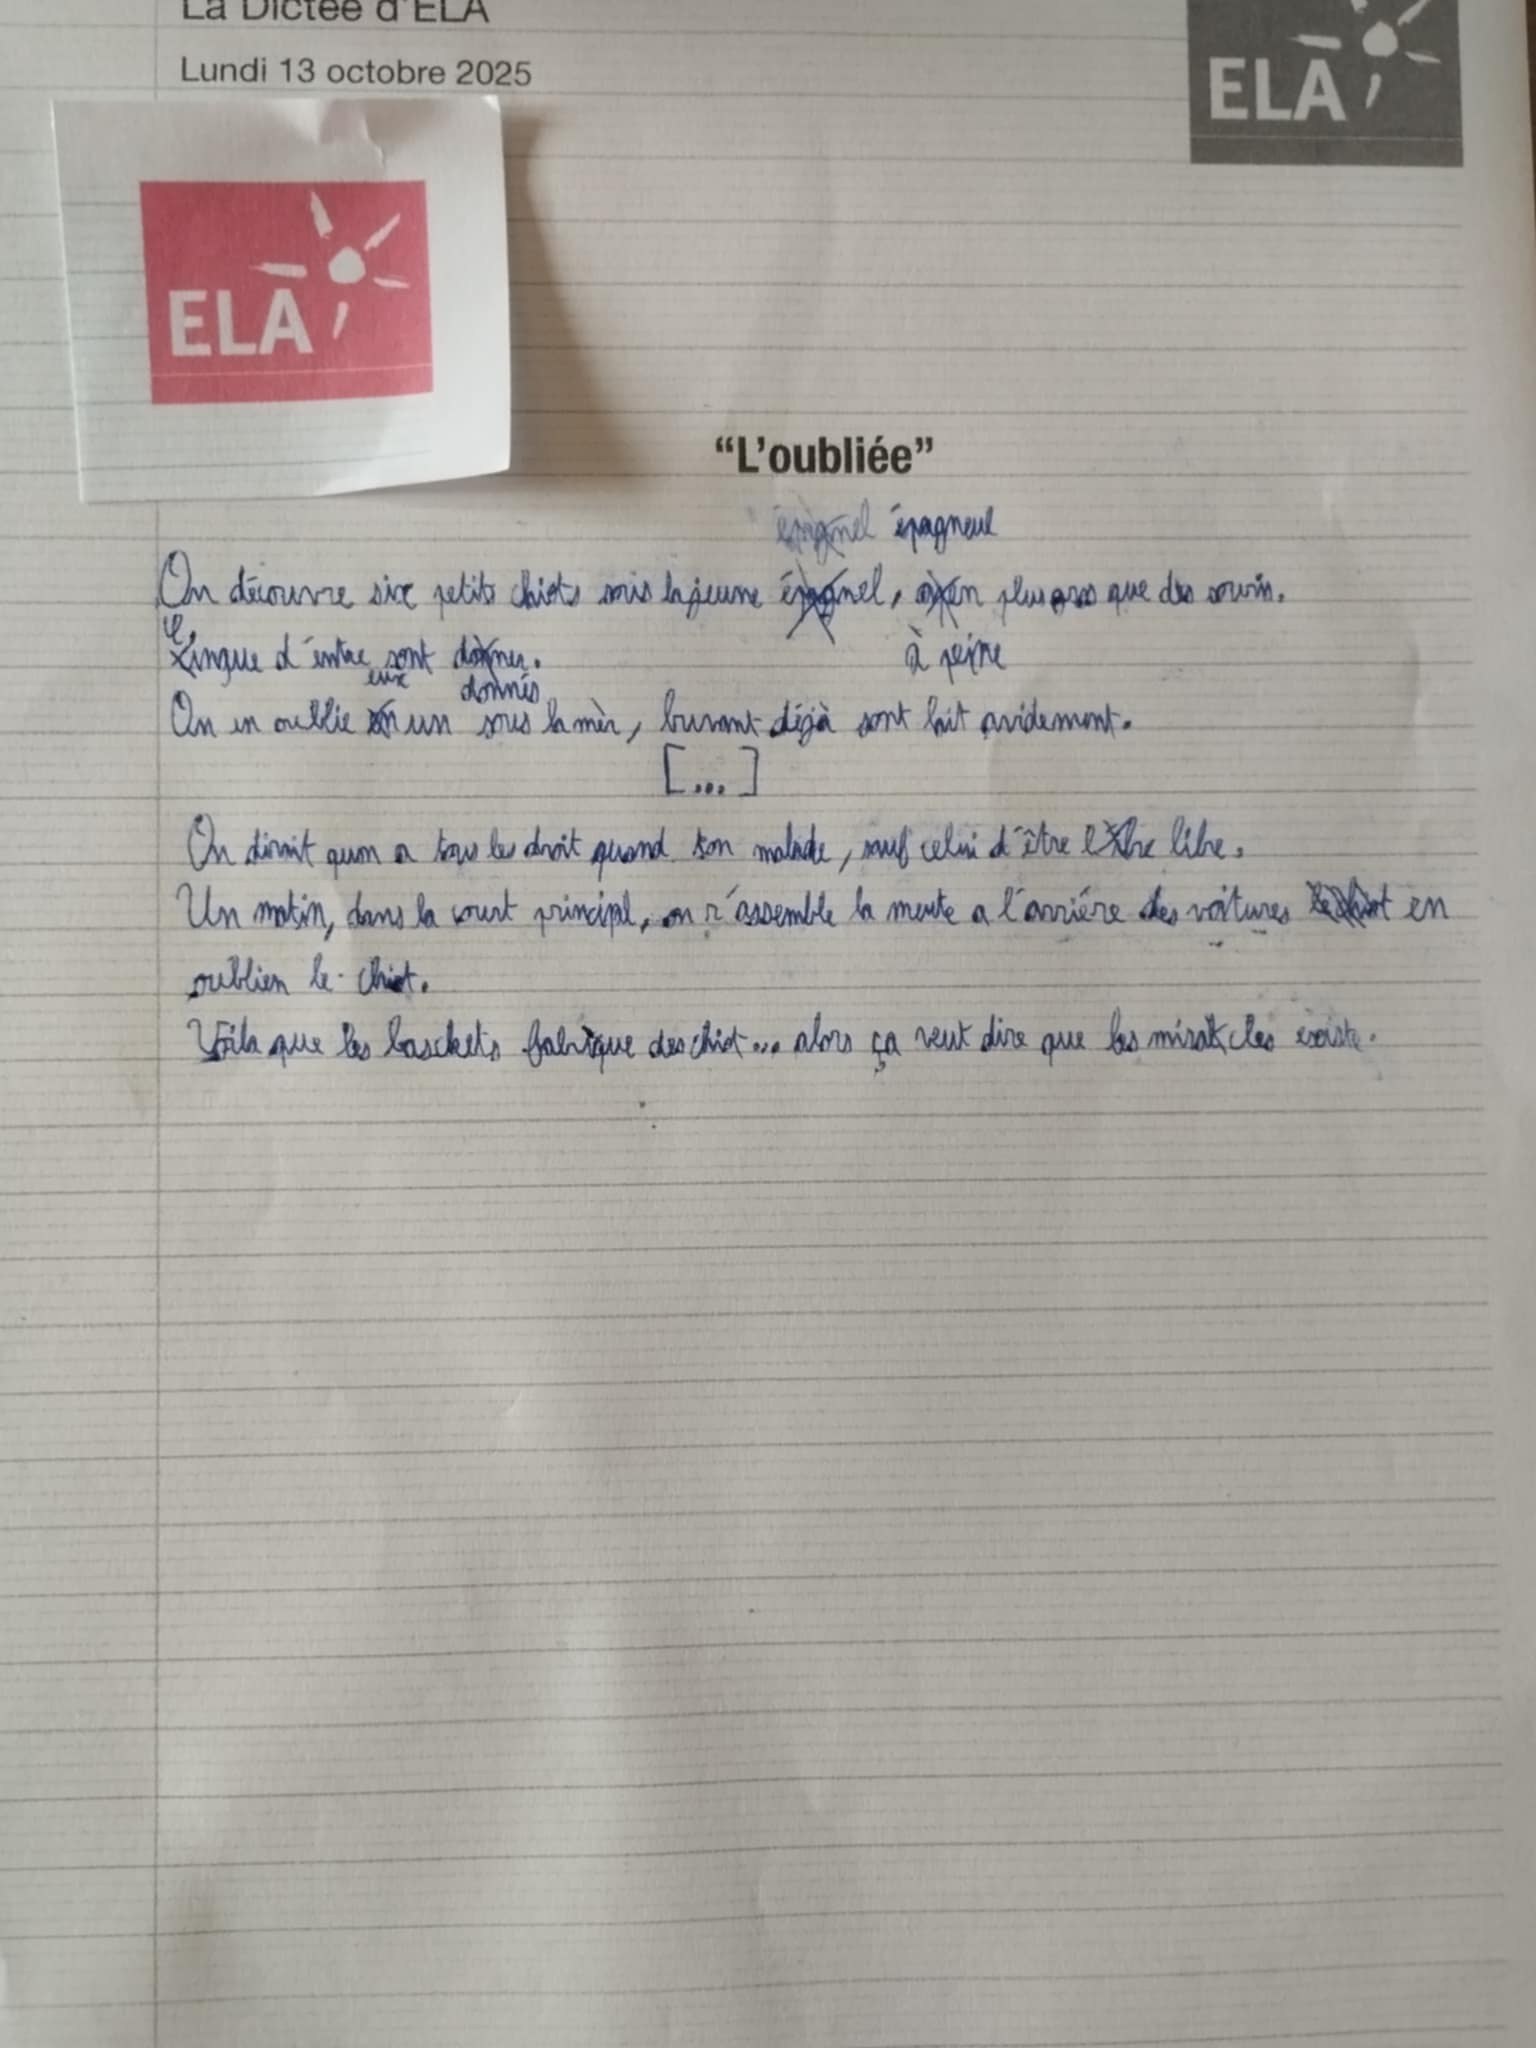 La Dictée d'ELA
Lundi 13 octobre 2025
ELA
ELA
“L'oubliée”
épagneul
On découvre six petits chiots sous la jeune épagnel, à en plus gros que des souris.
à peine
Cinque d'entre eux sont donner.
donnés
On en oublie un sous la mèr, buvant déjà sont lait avidement.
[...]
On dirait quon a tous les droit quand son malade, sauf celui d'être libre.
Un matin, dans la court principal, on r'assemble la meute a l'arriére des voitures en
oublien le chiot.
Voila que les basckets fabrique des chiot... alors ça veut dire que les miracles existe.